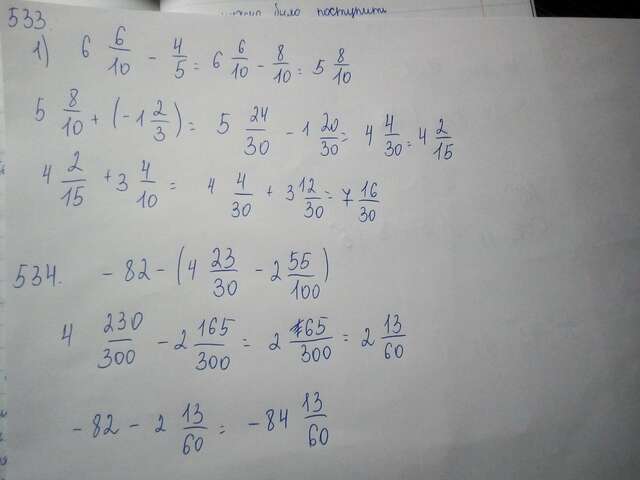 було поступити
533.
1) 6 6/10 - 4/5 = 6 6/10 - 8/10 = 5 8/10
5 8/10 + (-1 2/3) = 5 24/30 - 1 20/30 = 4 4/30 = 4 2/15
4 2/15 + 3 4/10 = 4 4/30 + 3 12/30 = 7 16/30
534. -82 - (4 23/30 - 2 55/100)
4 230/300 - 2 165/300 = 2 65/300 = 2 13/60
-82 - 2 13/60 = -84 13/60